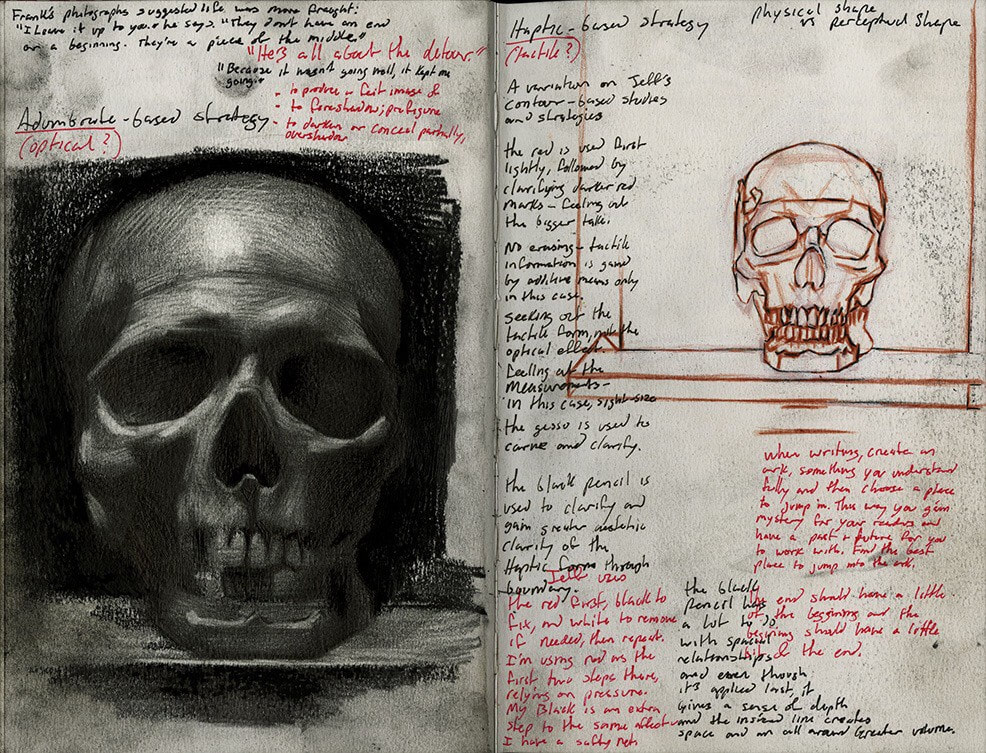 Frank's photographs suggested life was more fraught:
"I leave it up to you." he says "They don't have an end
or a beginning. They're a piece of the middle."
"He's all about the detour."
"Because it wasn't going well, it kept me
going."
- to produce a faint image of
- to foreshadow; prefigure
- to darken or conceal partially,
overshadow
Adumbrate-based strategy
(optical?)
Haptic-based strategy
(tactile?)
physical shape
vs perceptual shape
A variation on Jeff's
contour-based studies
and strategies
the red is used first
lightly, followed by
clarifying darker red
marks - feeling out
the bigger take.
No erasing - tactile
information is gained
by additive means only
in this case.
seeking out the
tactile form, not the
optical effect.
feeling out the
measurements-
in this case, sight-size
the gesso is used to
carve and clarify.
the black pencil is
used to clarify and
gain greater
clarity of the
Haptic forms through
boundary.
Jeff uses
the red first, black to
fix, and white to remove
if needed, then repeat.
I'm using red as the
first two steps there,
relying on pressure.
My Black is an extra
step to the same effect
I have a safety net.
when writing, create an
ark, something you understand
fully and then choose a place
to jump in. This way you gain
mystery for your readers and
have a past + future for you
to work with. Find the best
place to jump into the ark.
the end should have a little
of the beginning and the
beginning should have a little
bit of the end.
the black
pencil has
a lot to do
with spacial
relationships
and even though
it's applied last, it
gives a sense of depth
and the incised line creates
space and an all around Greater volume.